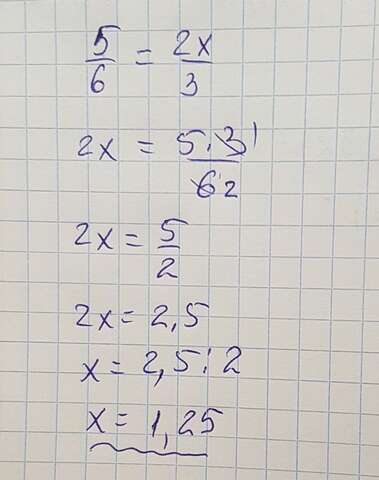 5/6 = 2x/3
2x = 5·3 1/6 2
2x = 5/2
2x = 2,5
x = 2,5 : 2
x = 1,25